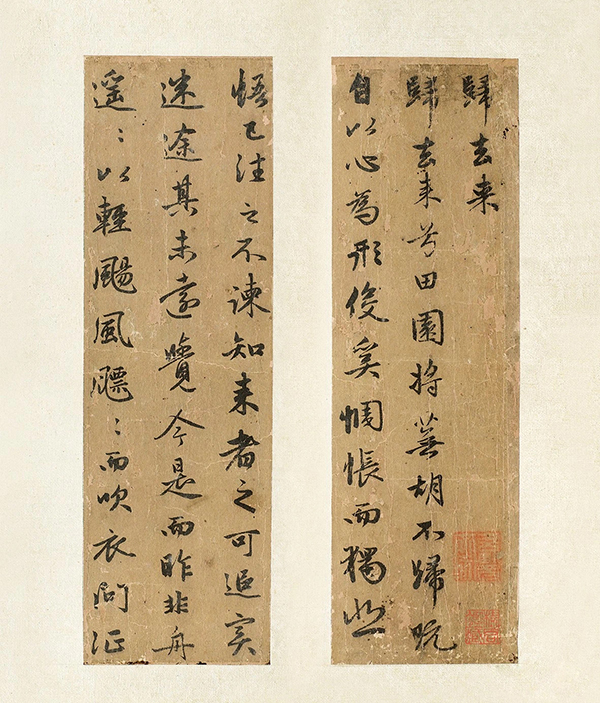 歸去来
歸去来兮田園將蕪胡不歸既
自以心為形役奚惆悵而獨悲
悟已往之不諫知来者之可追實
迷途其未遠覺今是而昨非舟
遥〻以輕颺風飄〻而吹衣問征